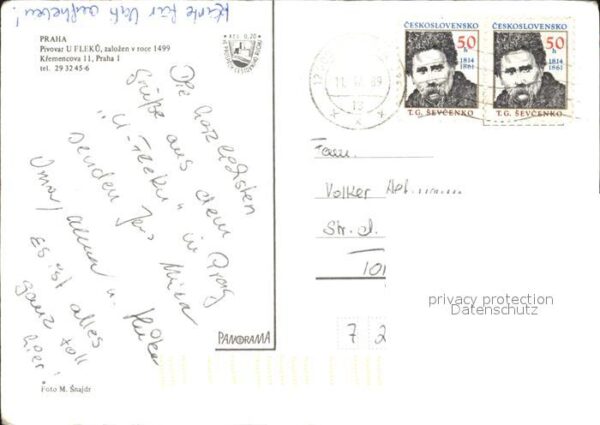 Karte für Vati aufheben!
PRAHA
Pivovar U FLEKŮ, založen v roce 1499
Křemencova 11, Praha 1
tel. 29 32 45-6
KčS 0,20
Die herzlichsten
Grüße aus dem
"U-Fleku" in Prag
senden Jens
Oma,
u. Heike
Es ist alles
ganz toll
hier!
Foto M. Šnajdr
PANORAMA
ČESKOSLOVENSKO
50 h
1814
1861
T. G. ŠEVČENKO
ČESKOSLOVENSKO
50 h
1814
1861
T. G. ŠEVČENKO
Fam.
Volker
Str. d.
101
7 2
privacy protection
Datenschutz